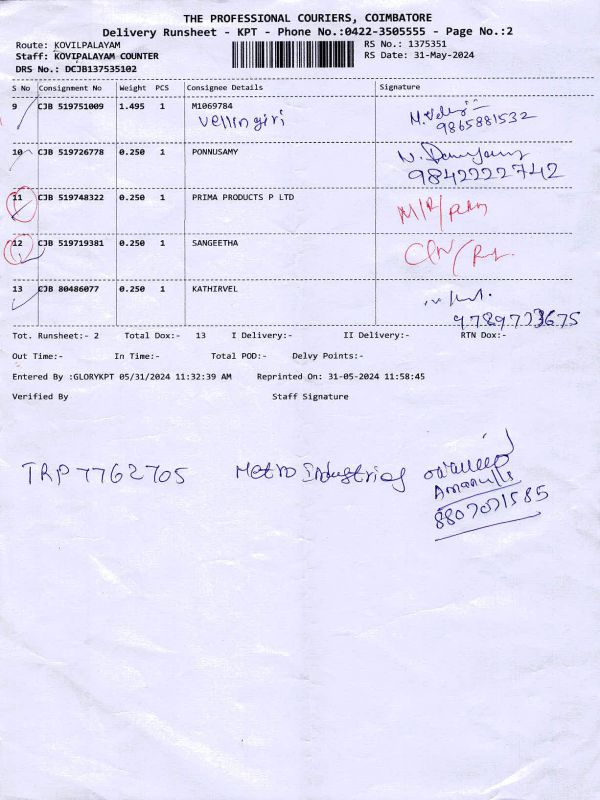 THE PROFESSIONAL COURIERS, COIMBATORE
Delivery Runsheet - KPT - Phone No.:0422-3505555 - Page No.:2
Route: KOVILPALAYAM RS No.: 1375351
Staff: KOVIPALAYAM COUNTER RS Date: 31-May-2024
DRS No.: DCJB137535102
S No Consignment No Weight PCS Consignee Details Signature
9 CJB 519751009 1.495 1 M1069784
Vellingiri
9865881532
10 CJB 519726778 0.250 1 PONNUSAMY
9842222742
11 CJB 519748322 0.250 1 PRIMA PRODUCTS P LTD
12 CJB 519719381 0.250 1 SANGEETHA
13 CJB 80486077 0.250 1 KATHIRVEL
Tot. Runsheet:- 2 Total Dox:- 13 I Delivery:- II Delivery:- RTN Dox:-
Out Time:- In Time:- Total POD:- Delvy Points:-
Entered By :GLORYKPT 05/31/2024 11:32:39 AM Reprinted On: 31-05-2024 11:58:45
Verified By Staff Signature
TRP 7762705 Metro Industries
8807071585